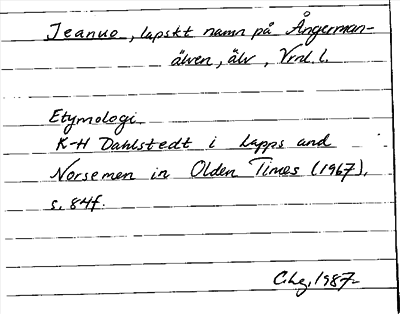 Jeanuo, lapskt namn på Ångerman-
älven, älv, Vrml. l.
Etymologi
K-H Dahlstedt i Lapps and
Norsemen in Olden Times (1967),
s. 84f.
1987